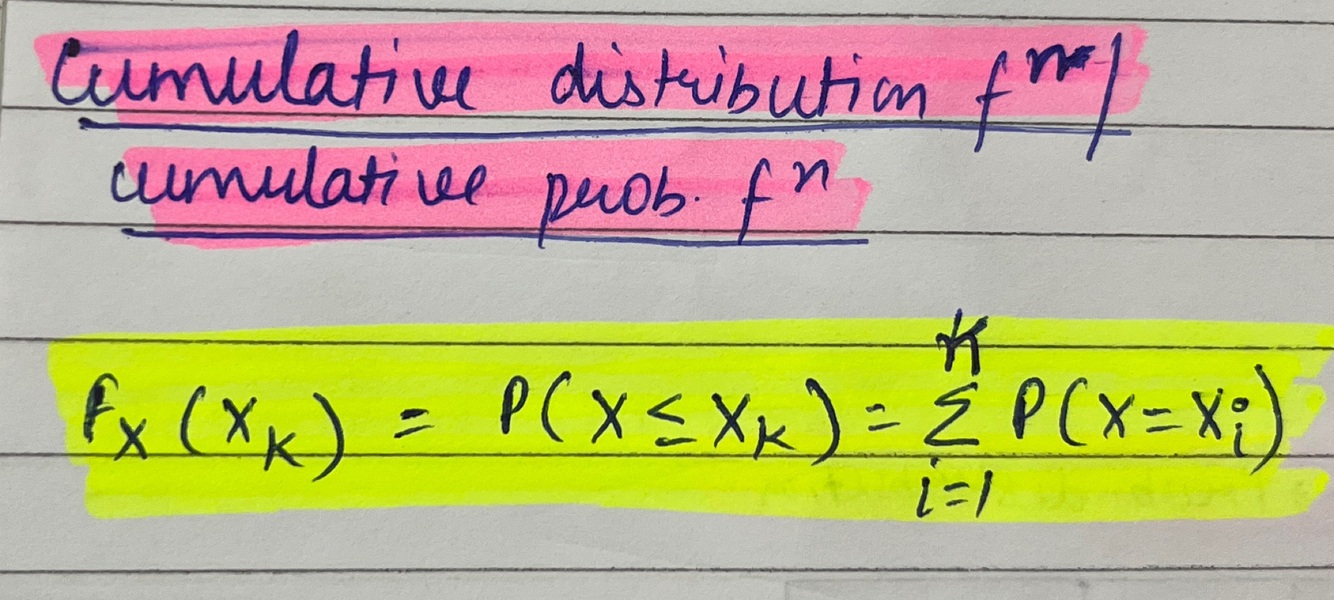 Cumulative distribution fⁿ/
cumulative prob. fⁿ
F_X (X_K) = P(X ≤ X_K) = ∑_{i=1}^{K} P(X = X_i)